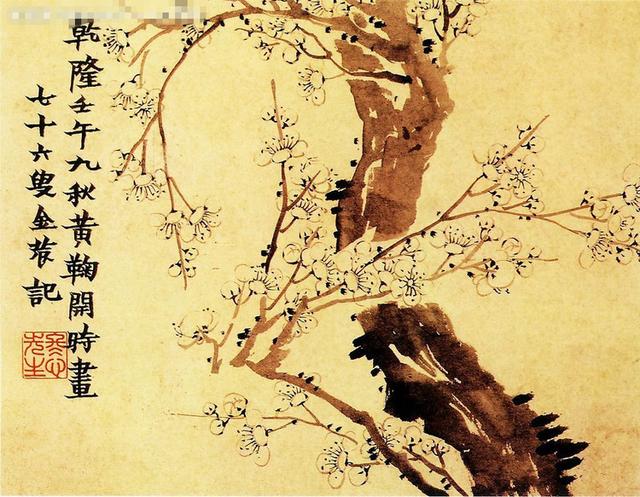 乾隆壬午九秋黄鞠開時畫
七十六叟金農記